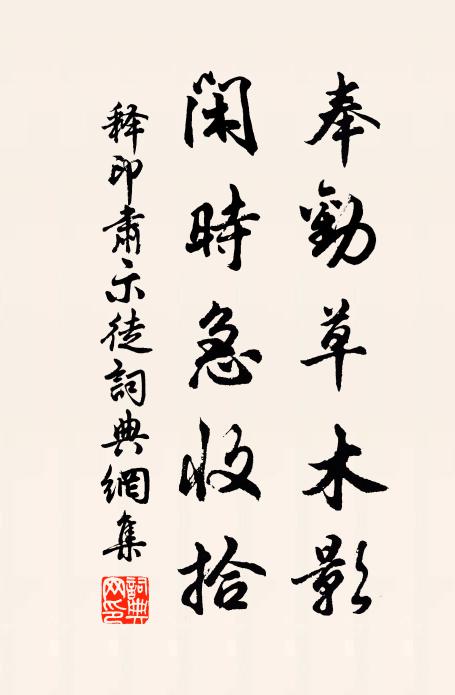 奉勸草木影
閑時急收拾
释印肅示徒詞典網集
詞典网印